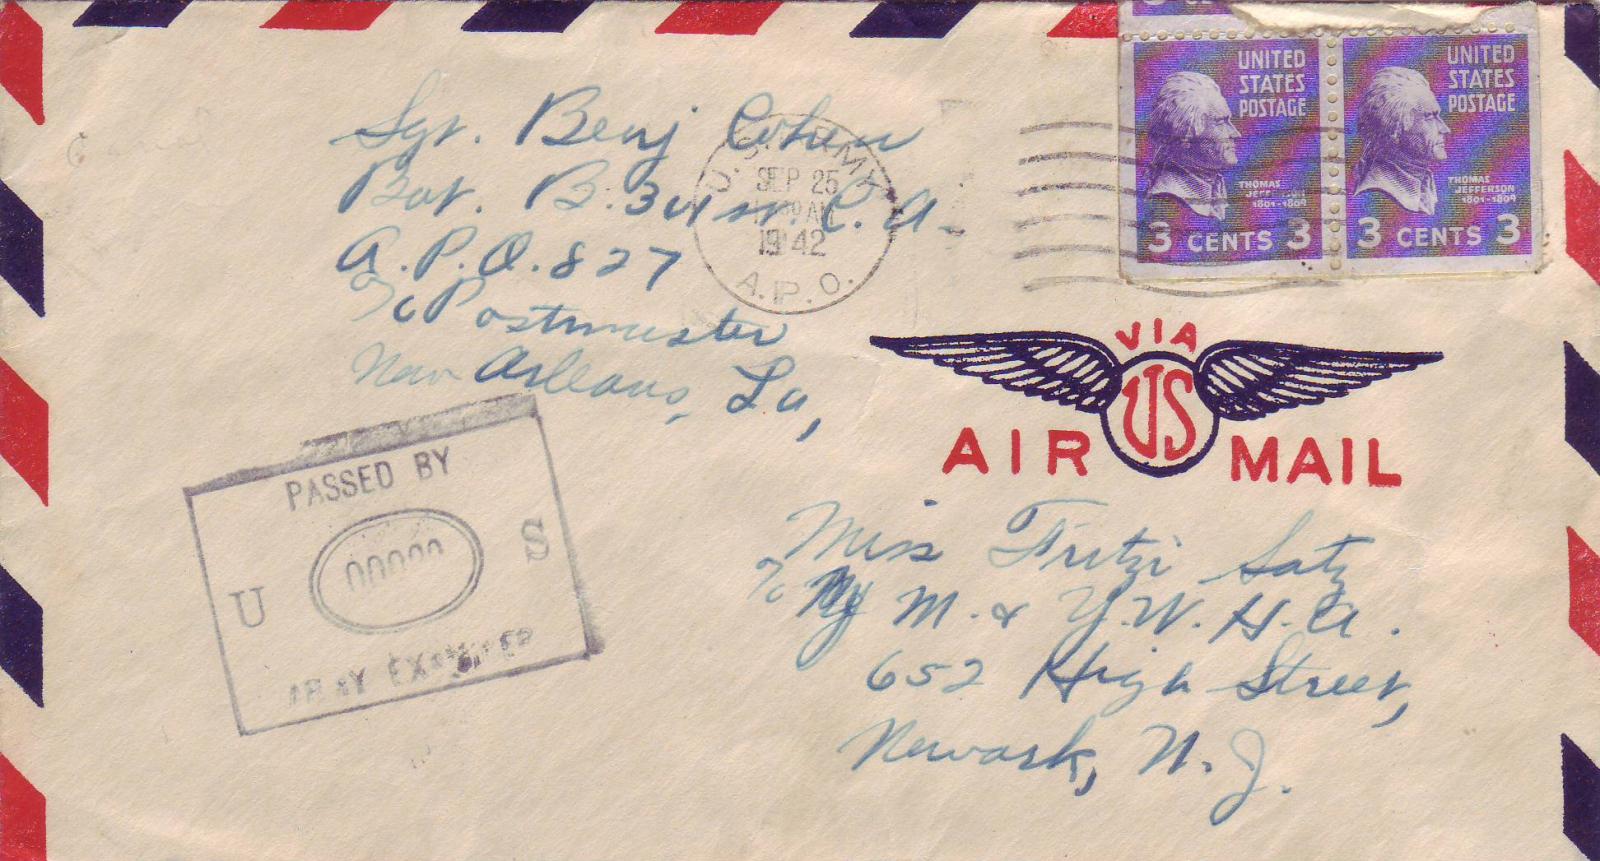 Sgt. Benj Cohen
Bat. B. C. A.
A.P.O. 827
c/o Postmaster
New Orleans, La,
U.S. ARMY
SEP 25
AM
1942
A.P.O.
UNITED
STATES
POSTAGE
THOMAS
JEFFERSON
1801-1809
3 CENTS 3
UNITED
STATES
POSTAGE
THOMAS
JEFFERSON
1801-1809
3 CENTS 3
VIA
US
AIR MAIL
PASSED BY
U S
ARMY EXAMINER
Miss Fritzi Satz
c/o Y. M. & Y. W. H. A.
652 High Street,
Newark, N. J.